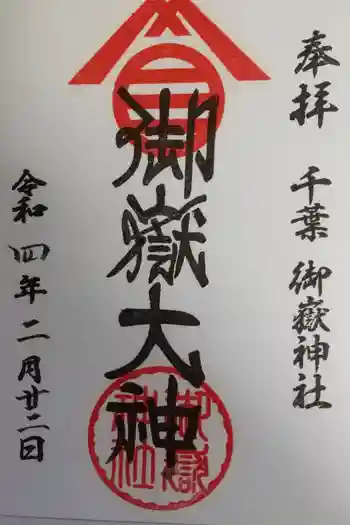 奉拝 千葉 御嶽神社
御嶽大神
令和四年二月廿二日
三
御嶽神社